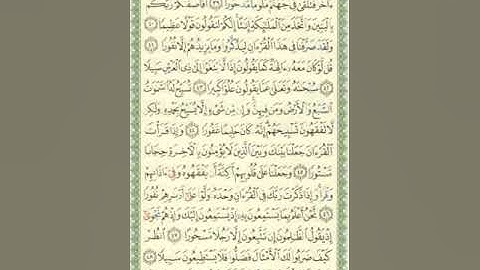 ءَاخَرَ فَتُلْقَىٰ فِي جَهَنَّمَ مَلُومًا مَّدْحُورًا ﴿٣٩﴾ أَفَأَصْفَىٰكُمْ رَبُّكُم
بِٱلْبَنِينَ وَٱتَّخَذَ مِنَ ٱلْمَلَٰٓئِكَةِ إِنَٰثًا ۚ إِنَّكُمْ لَتَقُولُونَ قَوْلًا عَظِيمًا ﴿٤٠﴾
وَلَقَدْ صَرَّفْنَا فِي هَٰذَا ٱلْقُرْءَانِ لِيَذَّكَّرُوا۟ وَمَا يَزِيدُهُمْ إِلَّا نُفُورًا ﴿٤١﴾
قُل لَّوْ كَانَ مَعَهُۥٓ ءَالِهَةٌ كَمَا يَقُولُونَ إِذًا لَّٱبْتَغَوْا۟ إِلَىٰ ذِي ٱلْعَرْشِ سَبِيلًا
﴿٤٢﴾ سُبْحَٰنَهُۥ وَتَعَٰلَىٰ عَمَّا يَقُولُونَ عُلُوًّا كَبِيرًا ﴿٤٣﴾ تُسَبِّحُ لَهُ ٱلسَّمَٰوَٰتُ
ٱلسَّبْعُ وَٱلْأَرْضُ وَمَن فِيهِنَّ ۚ وَإِن مِّن شَيْءٍ إِلَّا يُسَبِّحُ بِحَمْدِهِۦ وَلَٰكِن
لَّا تَفْقَهُونَ تَسْبِيحَهُمْ ۗ إِنَّهُۥ كَانَ حَلِيمًا غَفُورًا ﴿٤٤﴾ وَإِذَا قَرَأْتَ
ٱلْقُرْءَانَ جَعَلْنَا بَيْنَكَ وَبَيْنَ ٱلَّذِينَ لَا يُؤْمِنُونَ بِٱلْءَاخِرَةِ حِجَابًا
مَّسْتُورًا ﴿٤٥﴾ وَجَعَلْنَا عَلَىٰ قُلُوبِهِمْ أَكِنَّةً أَن يَفْقَهُوهُ وَفِيٓ ءَاذَانِهِمْ
وَقْرًا ۚ وَإِذَا ذَكَرْتَ رَبَّكَ فِي ٱلْقُرْءَانِ وَحْدَهُۥ وَلَّوْا۟ عَلَىٰٓ أَدْبَٰرِهِمْ نُفُورًا
﴿٤٦﴾ نَّحْنُ أَعْلَمُ بِمَا يَسْتَمِعُونَ بِهِۦٓ إِذْ يَسْتَمِعُونَ إِلَيْكَ وَإِذْ هُمْ نَجْوَىٰٓ
إِذْ يَقُولُ ٱلظَّٰلِمُونَ إِن تَتَّبِعُونَ إِلَّا رَجُلًا مَّسْحُورًا ﴿٤٧﴾ ٱنظُرْ
كَيْفَ ضَرَبُوا۟ لَكَ ٱلْأَمْثَالَ فَضَلُّوا۟ فَلَا يَسْتَطِيعُونَ سَبِيلًا ﴿٤٨﴾